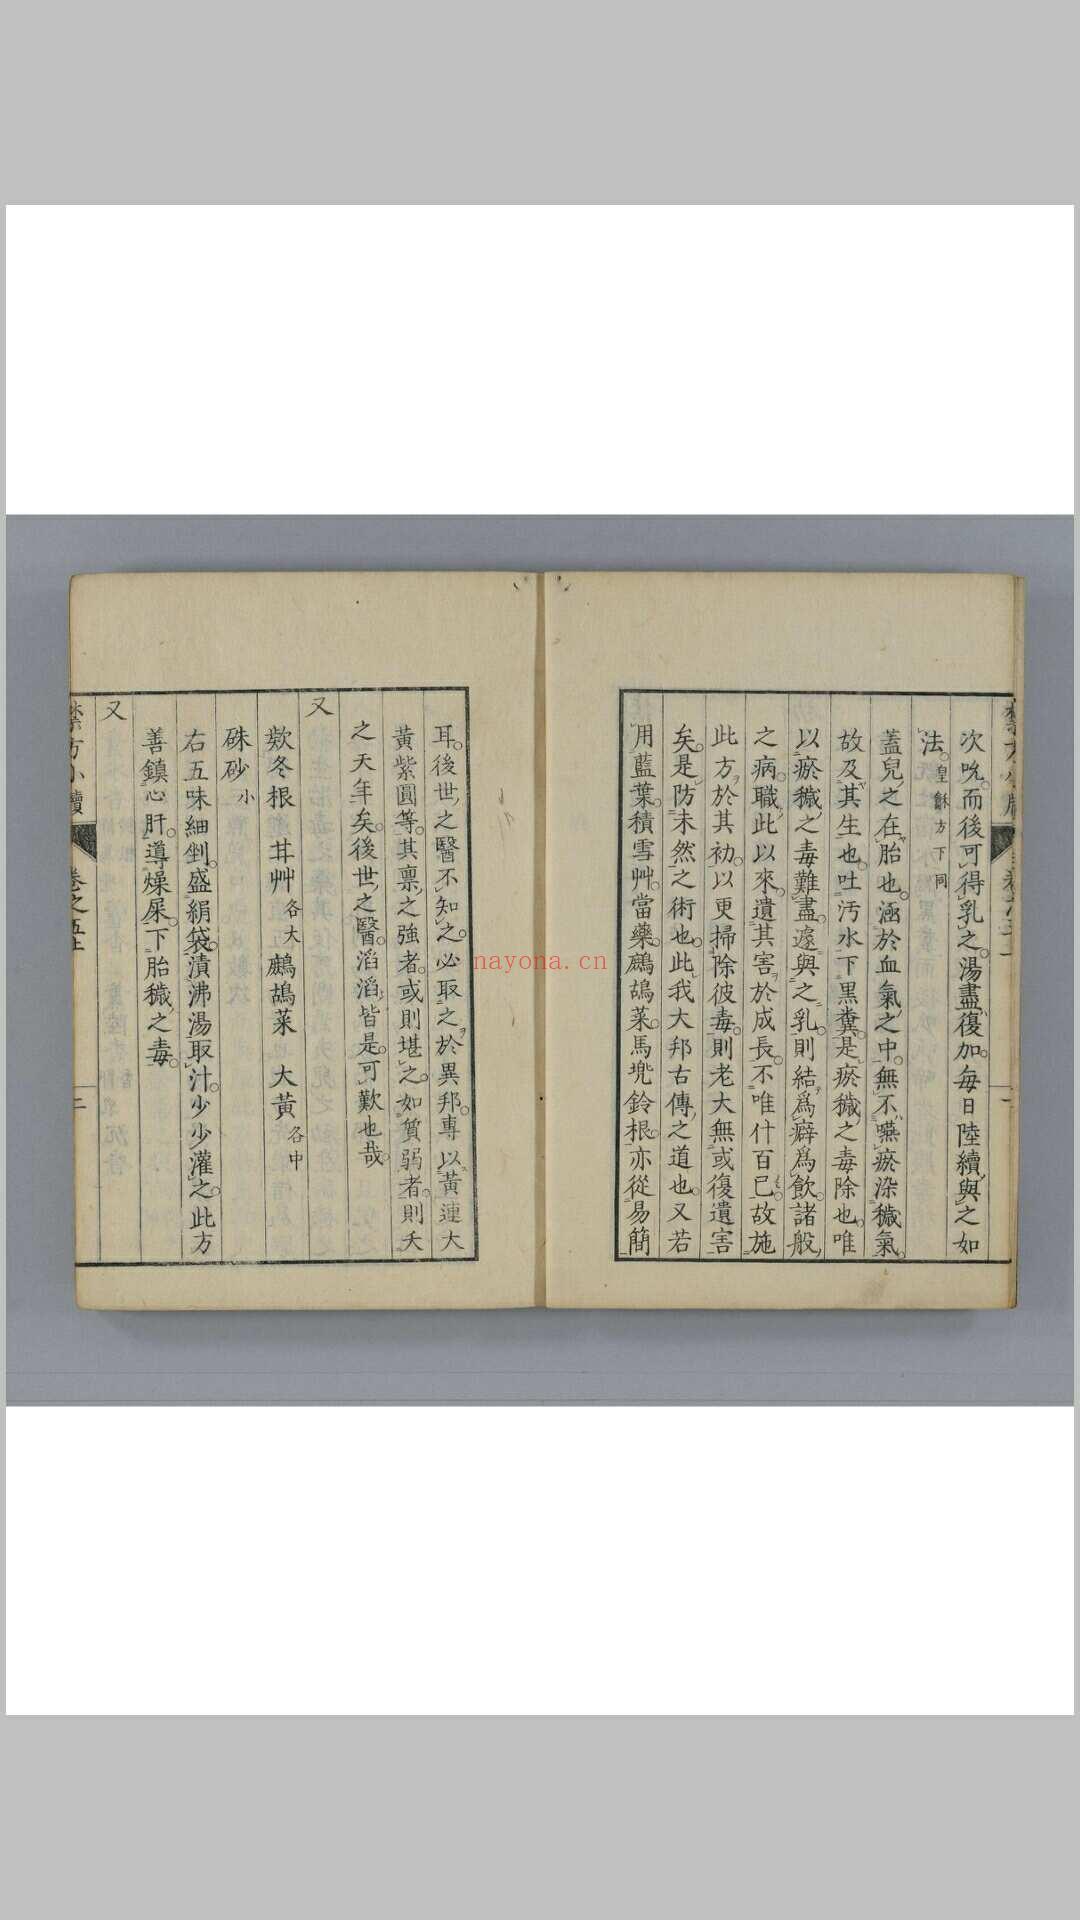 次吮。而後可得乳之。湯盡復加。每日陸續與之如
法。
蓋兒之在胎也。涵於血氣之中。無不嚥瘀染穢氣。
故及其生也。吐汚水下黒糞。是瘀穢之毒除也。唯
以瘀穢之毒難盡。遽與之乳。則結爲癖爲飲。諸般
之病。職此以來。遺其害於成長。不唯什百已。故施
此方於其初。以更掃除彼毒。則老大無或復遺害
矣。是防未然之術也。此我大邦古傳之道也。又若
用藍葉。積雪艸。當藥。鷓鴣菜。馬兜鈴根。亦從易簡
耳。後世之醫不知之。必取之於異邦。專以黃連大
黃紫圓等。其禀之強者。或則堪之。如質弱者。則夭
之天年矣。後世之醫。滔滔皆是。可歎也哉。
又
欵冬根 甘艸各大 鷓鴣菜 大黃各中
硃砂小
右五味細剉。盛絹袋。漬沸湯取汁。少少灌之。此方
善鎮心肝。導燥屎。下胎穢之毒。
又
禁方小牘 卷之五上 二
nayona.cn